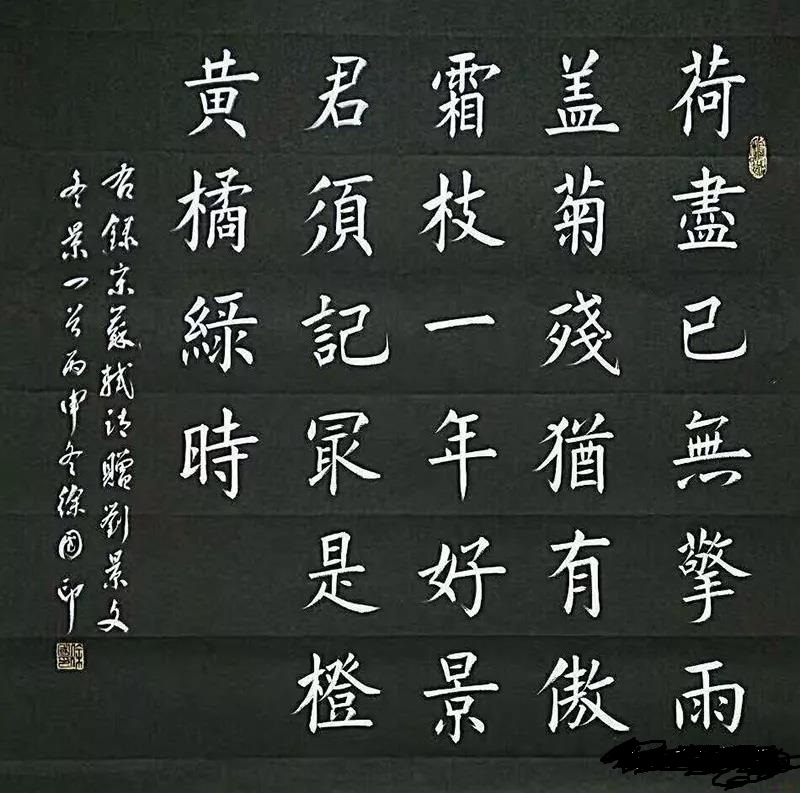 荷盡已無擎雨
盖菊殘猶有傲
霜枝一年好景
君須記冣是橙
黄橘緑時
右録宋蘇軾詩贈劉景文
冬景一首丙申冬徐国印